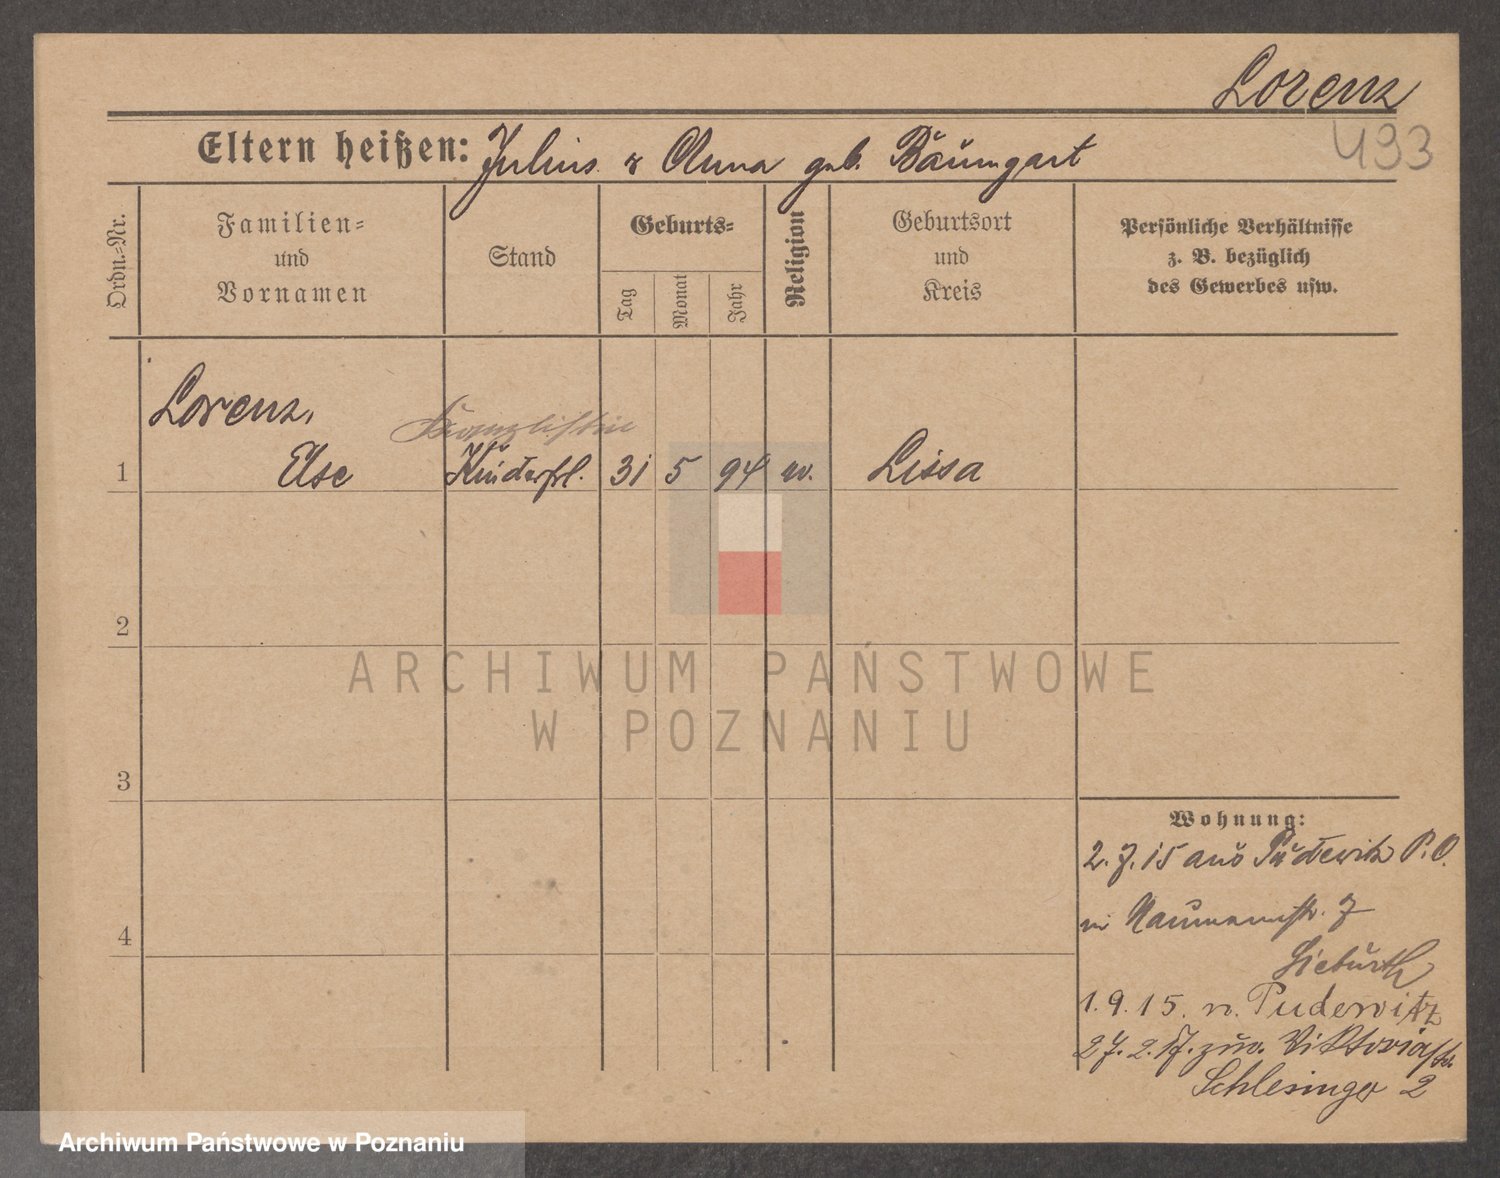 Lorenz
493
Eltern heißen: Julius & Anna geb. Baumgart
Ordn.-Nr.
Familien- und Vornamen
Stand
Geburts-
Tag
Monat
Jahr
Religion
Geburtsort und Kreis
Persönliche Verhältnisse
z. B. bezüglich
des Gewerbes usw.
Lorenz,
Kanzlistin
1 Else Kinderfrl. 31 5 94 ev. Lissa
2
3
4
Wohnung:
2. 7. 15 aus Pudewitz P. O.
Naumannstr. 7
Sieburth
1. 9. 15. n. Pudewitz
27. 2. 17. zuv. Viktoriastr.
Schlesinger 2
ARCHIWUM PAŃSTWOWE
W POZNANIU
Archiwum Państwowe w Poznaniu